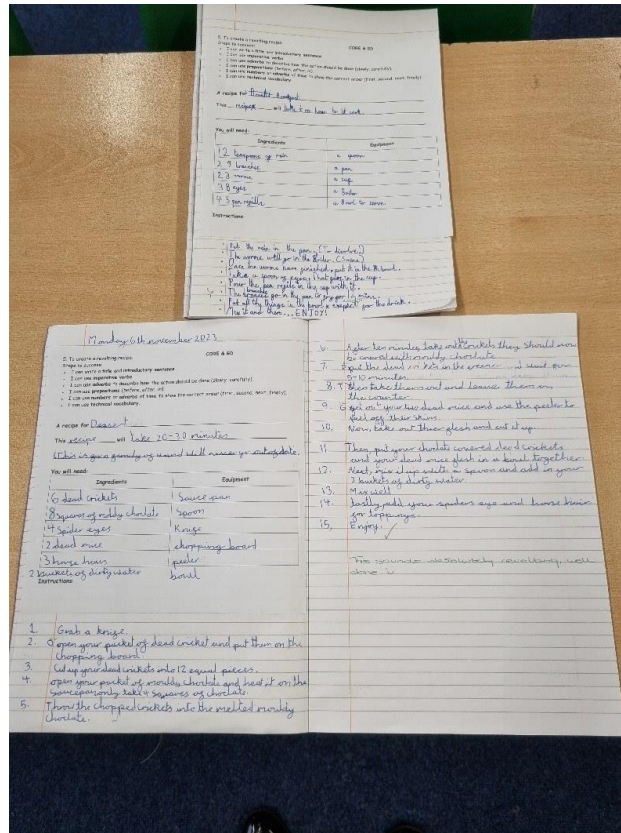 5. To create a revolting recipe.
CODE A SD
Steps to success:
I can write a title and introductory sentence
I can use imperative verbs
I can use adverbs to describe how the action should be done (slowly, carefully).
I can use prepositions (before, after, in)
I can use numbers or adverbs of time to show the correct order (first, second, next, finally)
I can use technical vocabulary.
A recipe for
This recipe will
You will need:
Ingredients Equipment
12 teaspoons of rain a spoon
2 9 branches a pan
2 3 worms a cup
3 8 eyes a
4 5 pen refills a Bowl to serve
Instructions
Put the rain in the pan. (To dissolve.)
The worms will go in the
put it in the
a spoon of eyes, that goes in the cup.
Pour the pen refills in the cup with it.
The go in the pan
Put all the things in the bowl except for the drink.
Mix it and then... ENJOY!
Monday 6th november 2023
5. To create a revolting recipe.
CODE A SD
Steps to success:
I can write a title and introductory sentence
I can use imperative verbs
I can use adverbs to describe how the action should be done (slowly, carefully).
I can use prepositions (before, after, in)
I can use numbers or adverbs of time to show the correct order (first, second, next, finally)
I can use technical vocabulary.
A recipe for Dessert
This recipe will take 20-30 minutes
You will need:
Ingredients Equipment
6 dead crickets Sauce pan
8 squares of moldy choclate Spoon
14 spider eyes Knife
2 dead mice chopping board
3 horse hairs peeler
2 buckets of dirty water bowl
Instructions
1. Grab a knife.
2. open your packet of dead cricket and put them on the
chopping board.
3. Cut up your dead crickets into 12 equal pieces.
4. open your packet of mouldy choclate and heat it on the
saucepan only take 4 squares of choclate.
5. Throw the chopped crickets into the melted mouldy
choclate.
6. After ten minutes take out the crickets they should now
be covered with mouldy choclate.
7. put the dead in the freezer and wait for
5-10 minutes.
8. Then take them out and leave them on
the counter.
9. Get out your two dead mice and use the peeler to
peel off their skins.
10. Now, take out their flesh and cut it up.
11 Then put your choclate covered dead crickets
and your dead mice flesh in a bowl together.
12. Next, mix it up with a spoon and add in your
2 buckets of dirty water.
13. Mix well
14. lastly add your spiders eye and horse hair
for toppings.
15, Enjoy!
This sounds absolutely revolting, well
done